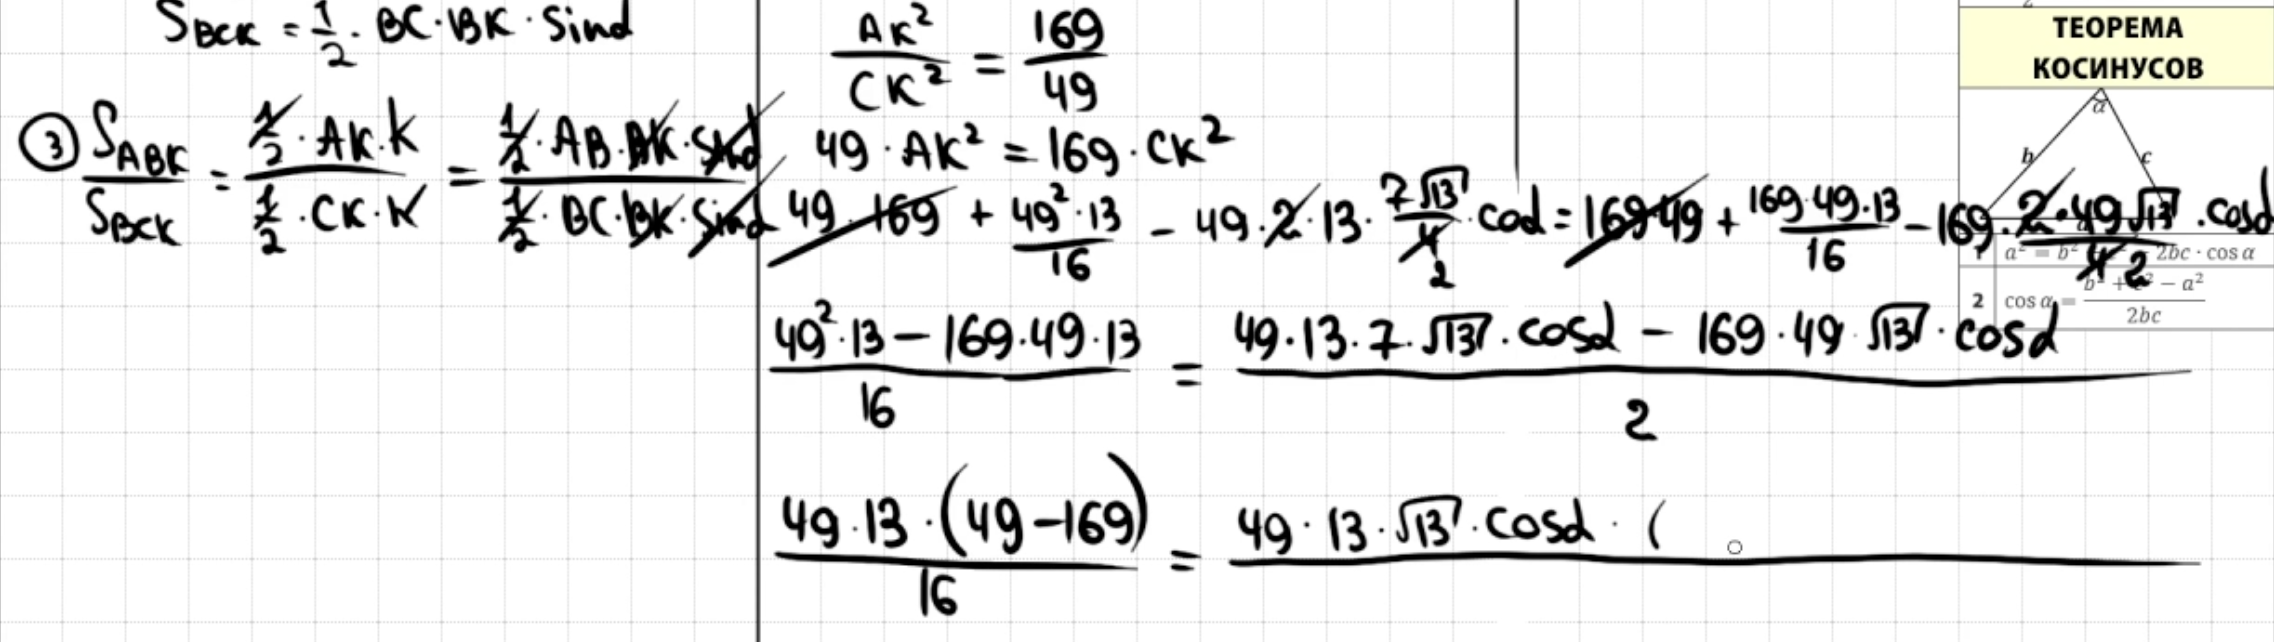 S_BCK = 1/2 · BC · BK · sinα
③ S_ABK / S_BCK = (1/2 · AK · K) / (1/2 · CK · K) = (1/2 · AB · BK · sinα) / (1/2 · BC · BK · sinα)
AK² / CK² = 169 / 49
49 · AK² = 169 · CK²
49 · 169 + 49² · 13 / 16 − 49 · 2 · 13 · 7√13 / 4 2 · coα = 169 49 + 169 · 49 · 13 / 16 − 169 · 2 · 49 √13 / 4 2 · cosα
(49² · 13 − 169 · 49 · 13) / 16 = (49 · 13 · 7 · √13 · cosα − 169 · 49 · √13 · cosα) / 2
49 · 13 · (49 − 169) / 16 = 49 · 13 · √13 · cosα · (
ТЕОРЕМА
КОСИНУСОВ
α
b c
1 a² = b² 2bc · cos α
2 cos α = (b² + c² − a²) / 2bc